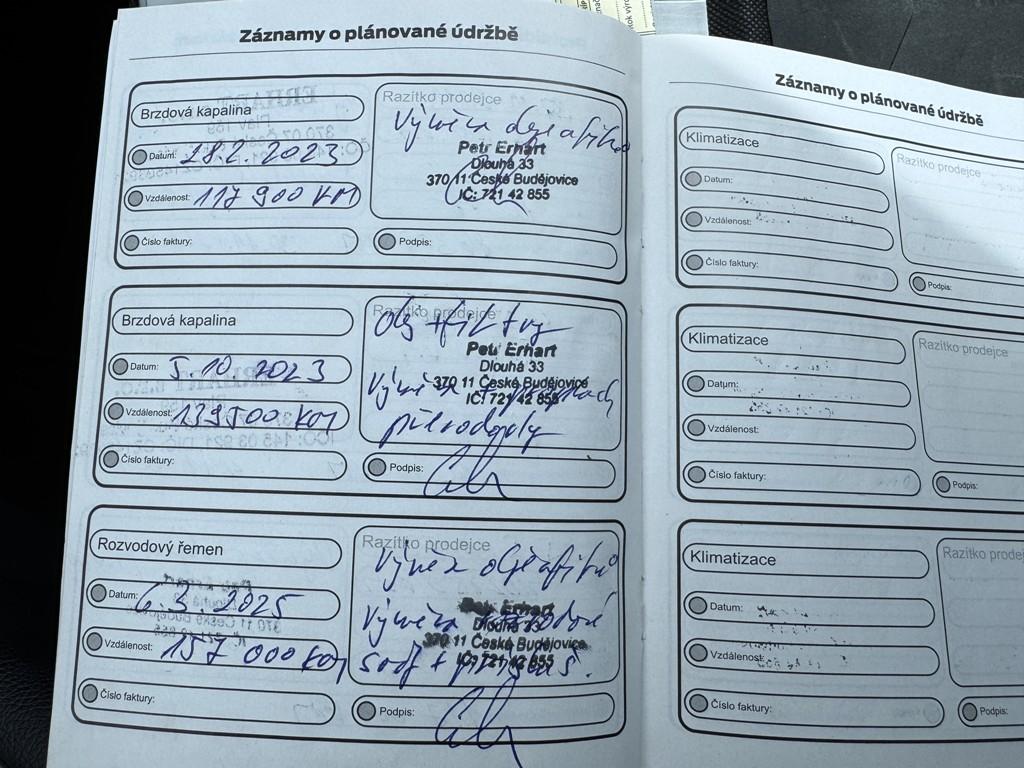 Záznamy o plánované údržbě
Brzdová kapalina
Datum: 28.2.2023
Vzdálenost: 117 900 KM
Číslo faktury:
Razítko prodejce
Výměna oleje a filtrů
Petr Erhart
Dlouhá 33
370 11 České Budějovice
IČ: 721 42 855
Podpis:
Brzdová kapalina
Datum: 5 10 2023
Vzdálenost: 139500 KM
Číslo faktury:
Razítko prodejce
Olej + filtry
Petr Erhart
Dlouhá 33
Výměna +
370 11 České Budějovice
IČ: 721 42 855
převodovky
Podpis:
Rozvodový řemen
Datum: 6.3.2025
Vzdálenost: 157 000 KM
Číslo faktury:
Razítko prodejce
Výměna oleje a filtrů
Petr Erhart
Výměna rozvodové
Dlouhá 33
370 11 České Budějovice
sady +
IČ: 721 42 855
Podpis:
Záznamy o plánované údržbě
Klimatizace
Datum:
Vzdálenost:
Číslo faktury:
Razítko prodejce
Podpis:
Klimatizace
Datum:
Vzdálenost:
Číslo faktury:
Razítko prodejce
Podpis:
Klimatizace
Datum:
Vzdálenost:
Číslo faktury:
Razítko
Podpis: